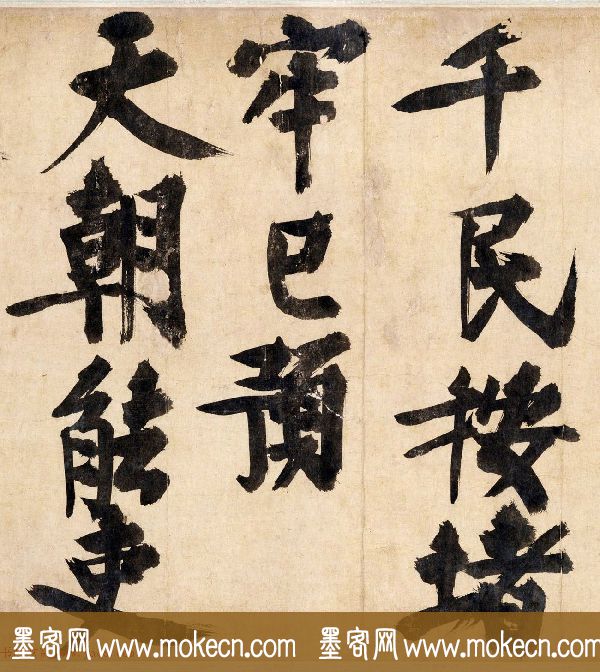 千民按堵
牢已預
天朝能吏
墨客网 www.mokecn.com 墨客网 www.mokecn.com